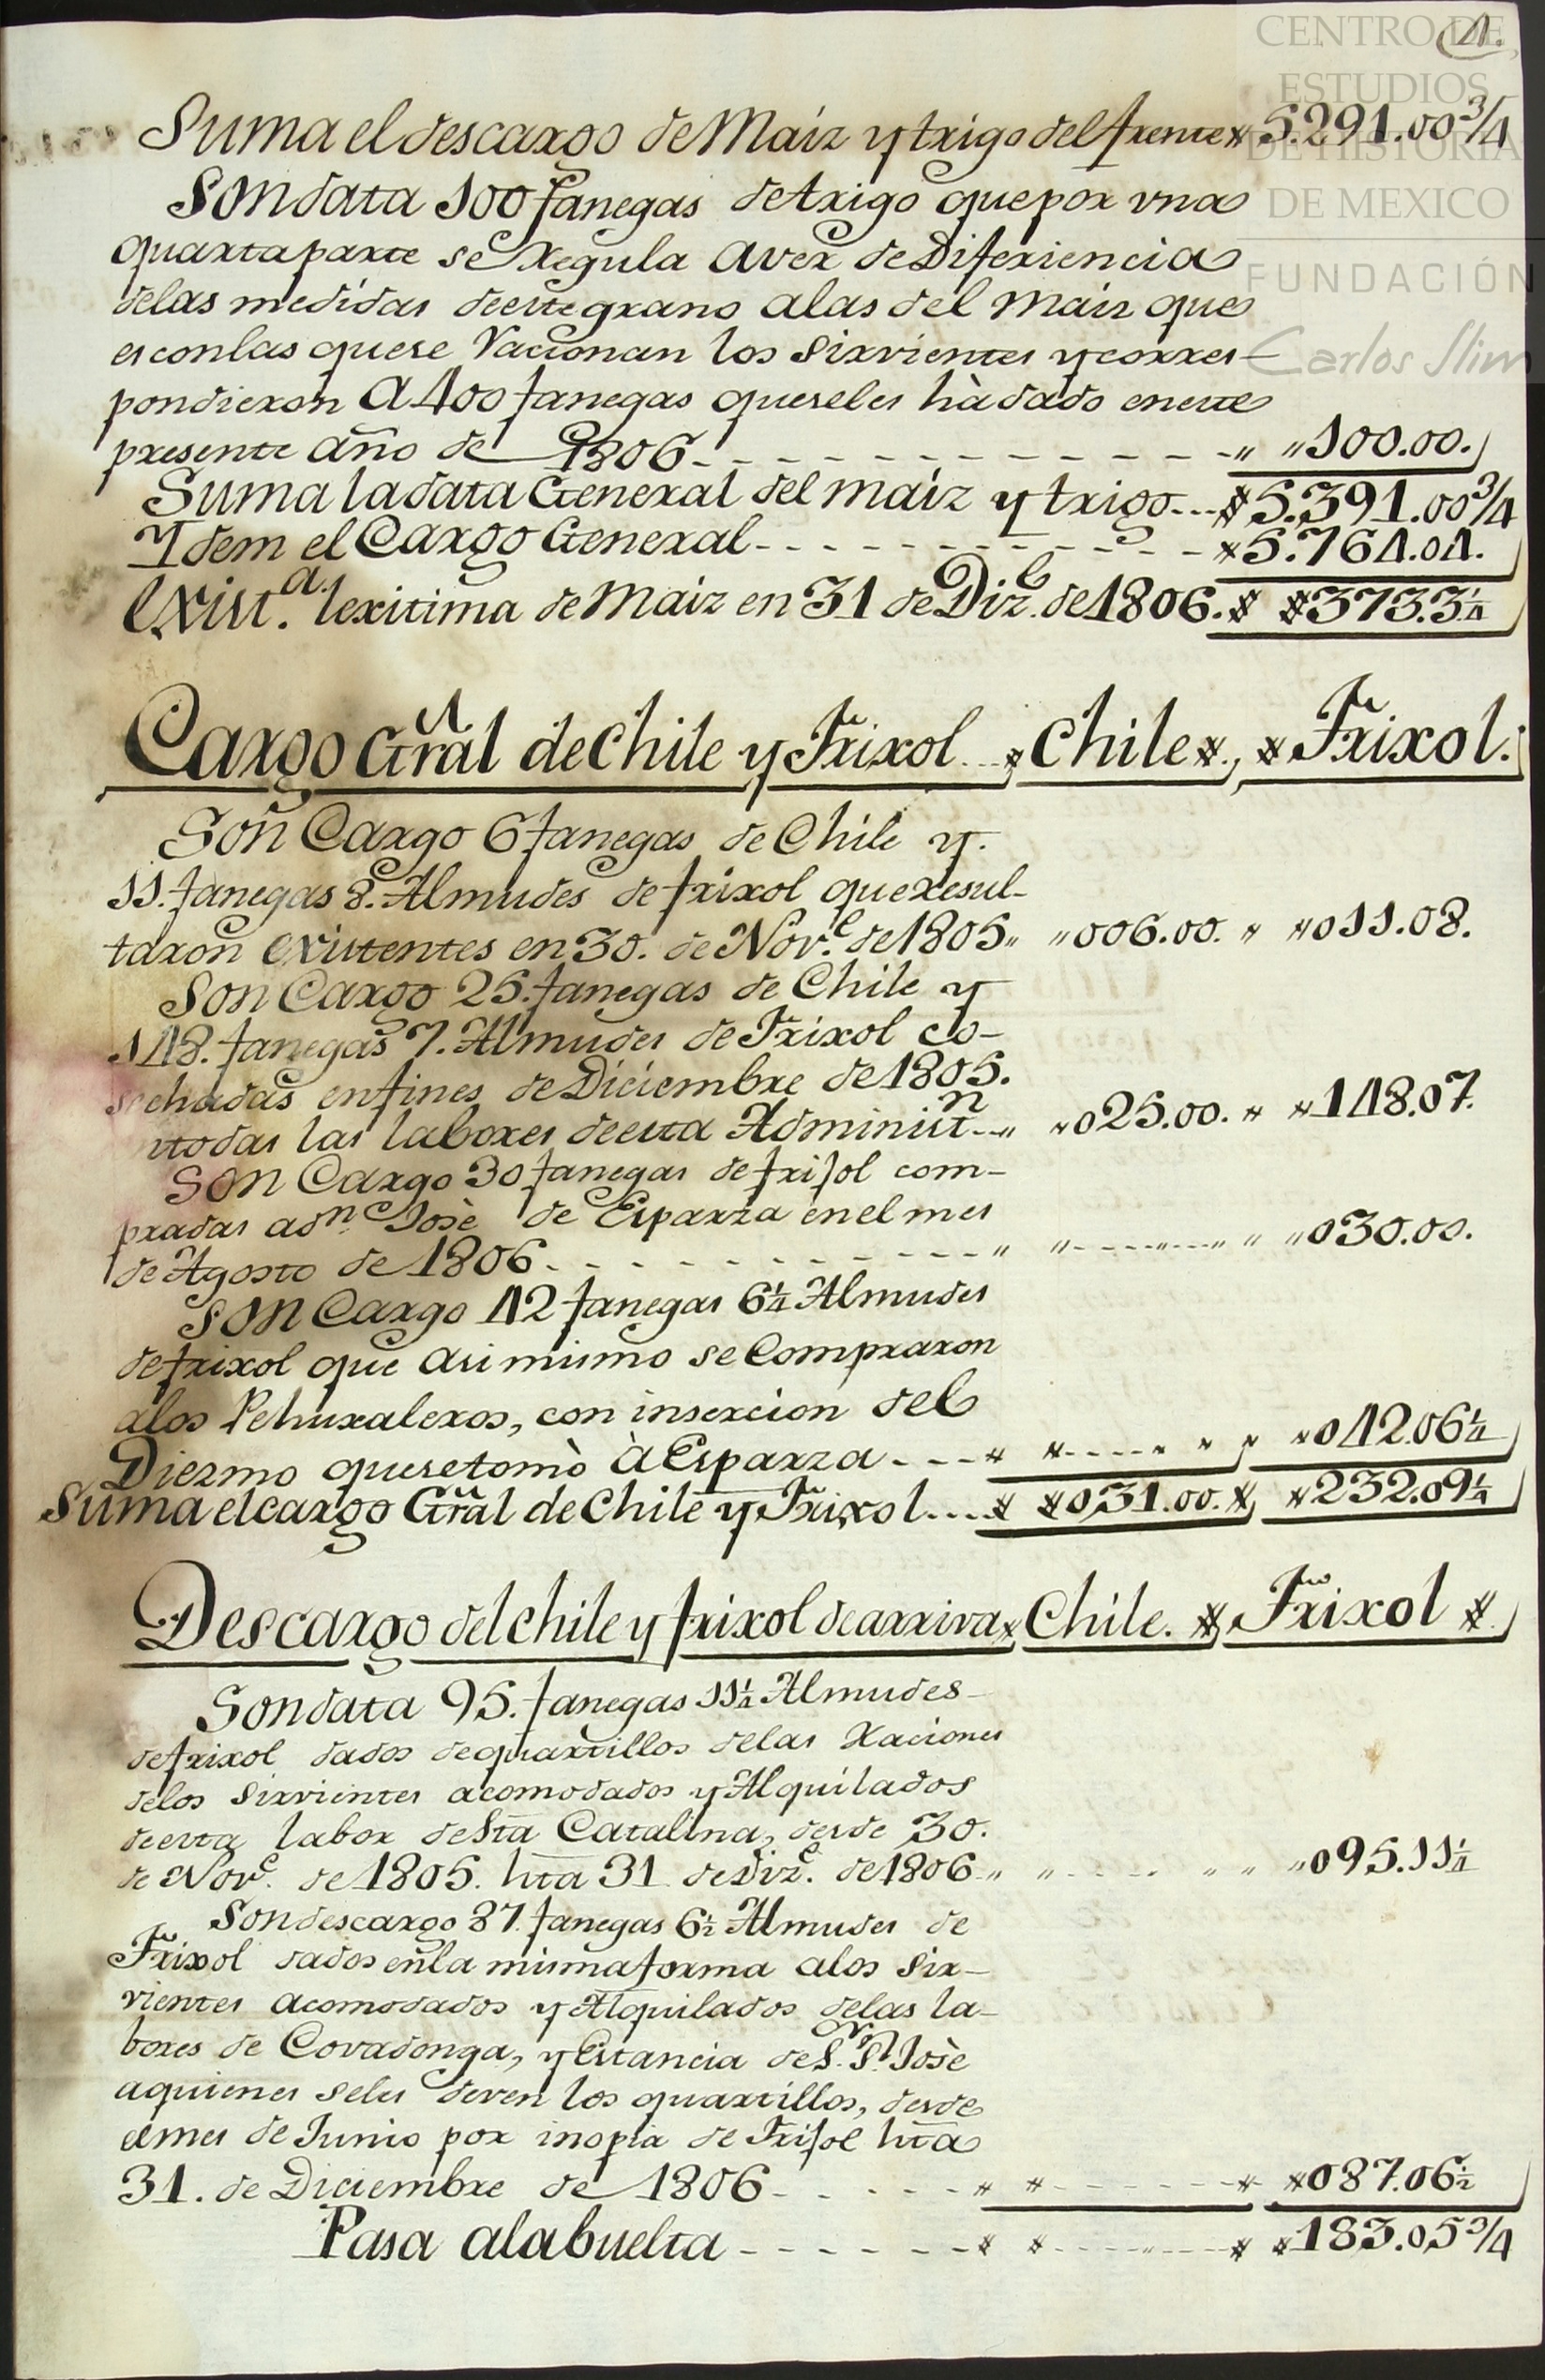 4.
CENTRO DE
ESTUDIOS
DE HISTORIA
DE MEXICO
FUNDACIÓN
Carlos Slim
Suma el descargo de Maíz y trigo del frente 5.291.00 3/4
Son data 100 fanegas de trigo que por vna
quarta parte se regula aver de Diferiencia
de las medidas de este grano a las del Maíz que
es con las que se racionan los sirvientes y corres-
pondieron a 400 fanegas que se les hà dado en este
presente año de 1806 - - - " " 100.00.
Suma la data General del maíz y trigo... 5.391.00 3/4
Ydem el Cargo General - - - 5.764.04.
Exist.a lexitima de Maiz en 31 de Diz.e de 1806. 373.3 1/4
Cargo Grãl de Chile y Frixol... Chile Frixol.
Son Cargo 6 fanegas de Chile y
11. fanegas 8. Almudes de frixol que resul-
taron existentes en 30. de Nov.e de 1805 " " 006.00. " " 011.08.
Son Cargo 25. fanegas de Chile y
148. fanegas 7. Almudes de Frixol co-
sechadas en fines de Diciembre de 1805.
n todas las labores de esta Administ.n " " 025.00. " " 148.07.
Son Cargo 30 fanegas de frisol com-
pradas a dn. Josè de Esparza en el mes
de Agosto de 1806 - - - " " - - - " " 030.00.
Son Cargo 42 fanegas 6 1/4 Almudes
de frixol que asi mismo se Compraron
a los Pehuxaleros, con insercion del
Diezmo que se tomò à Esparza - - - 042.06 1/4
Suma el cargo Grãl de Chile y Frixol.... 031.00. 232.09 1/4
Descargo del chile y frixol de arriva Chile. Frixol
Son data 95. fanegas 11 1/4 Almudes
de frixol dados de quartillos de las Raciones
de los sirvientes acomodados y Alquilados
de esta labor de Sta Catalina, desde 30.
de Nov.e de 1805. hta 31 de Diz.e de 1806 " " - - - " " " 095.11 1/4
Son descargo 87. fanegas 6 1/2 Almudes de
Frixol dados en la misma forma a los sir-
vientes acomodados y Alquilados de las la-
bores de Covadonga, y Estancia de S.r S.n Josè
a quienes se les deven los quartillos, desde
el mes de Junio por inopia de Frisol hta
31. de Diciembre de 1806 - - - 087.06 1/2
Pasa a la buelta - - - 183.05 3/4